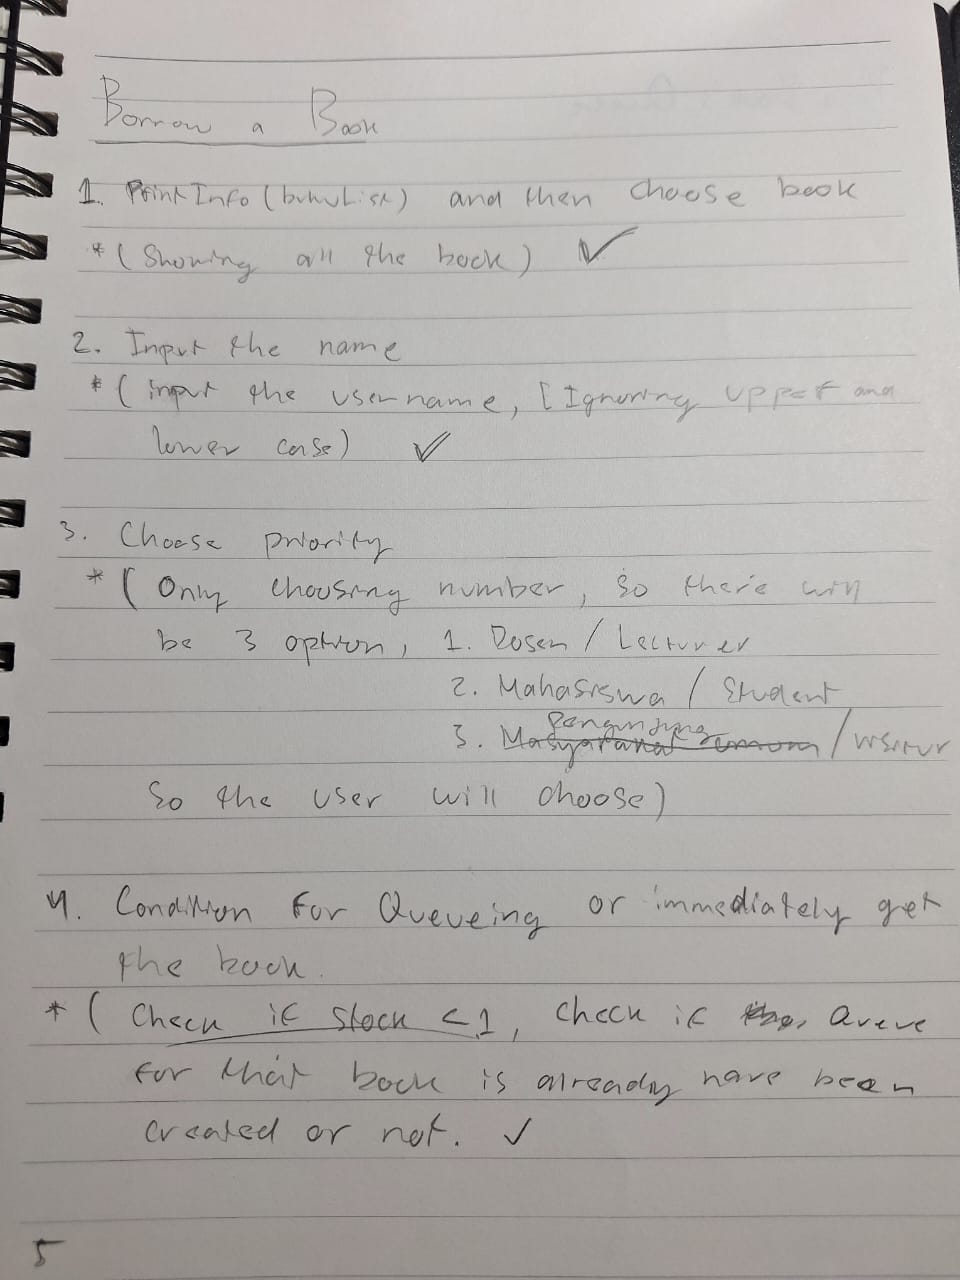 Borrow a Book
1. PrintInfo (bukuList) and then choose book
* (Showing all the book) ✓
2. Input the name
* (input the username, [Ignoring upper and
lower case) ✓
3. Choose priority
* (Only choosing number, so there will
be 3 option, 1. Dosen / Lecturer
2. Mahasiswa / Student
Pengunjung
3. Masyarakat umum / visitor
So the user will choose)
4. Condition for Queueing or immediately get
the book.
* (Check if stock <1, check if Queue
for that book is already have been
created or not. ✓
5